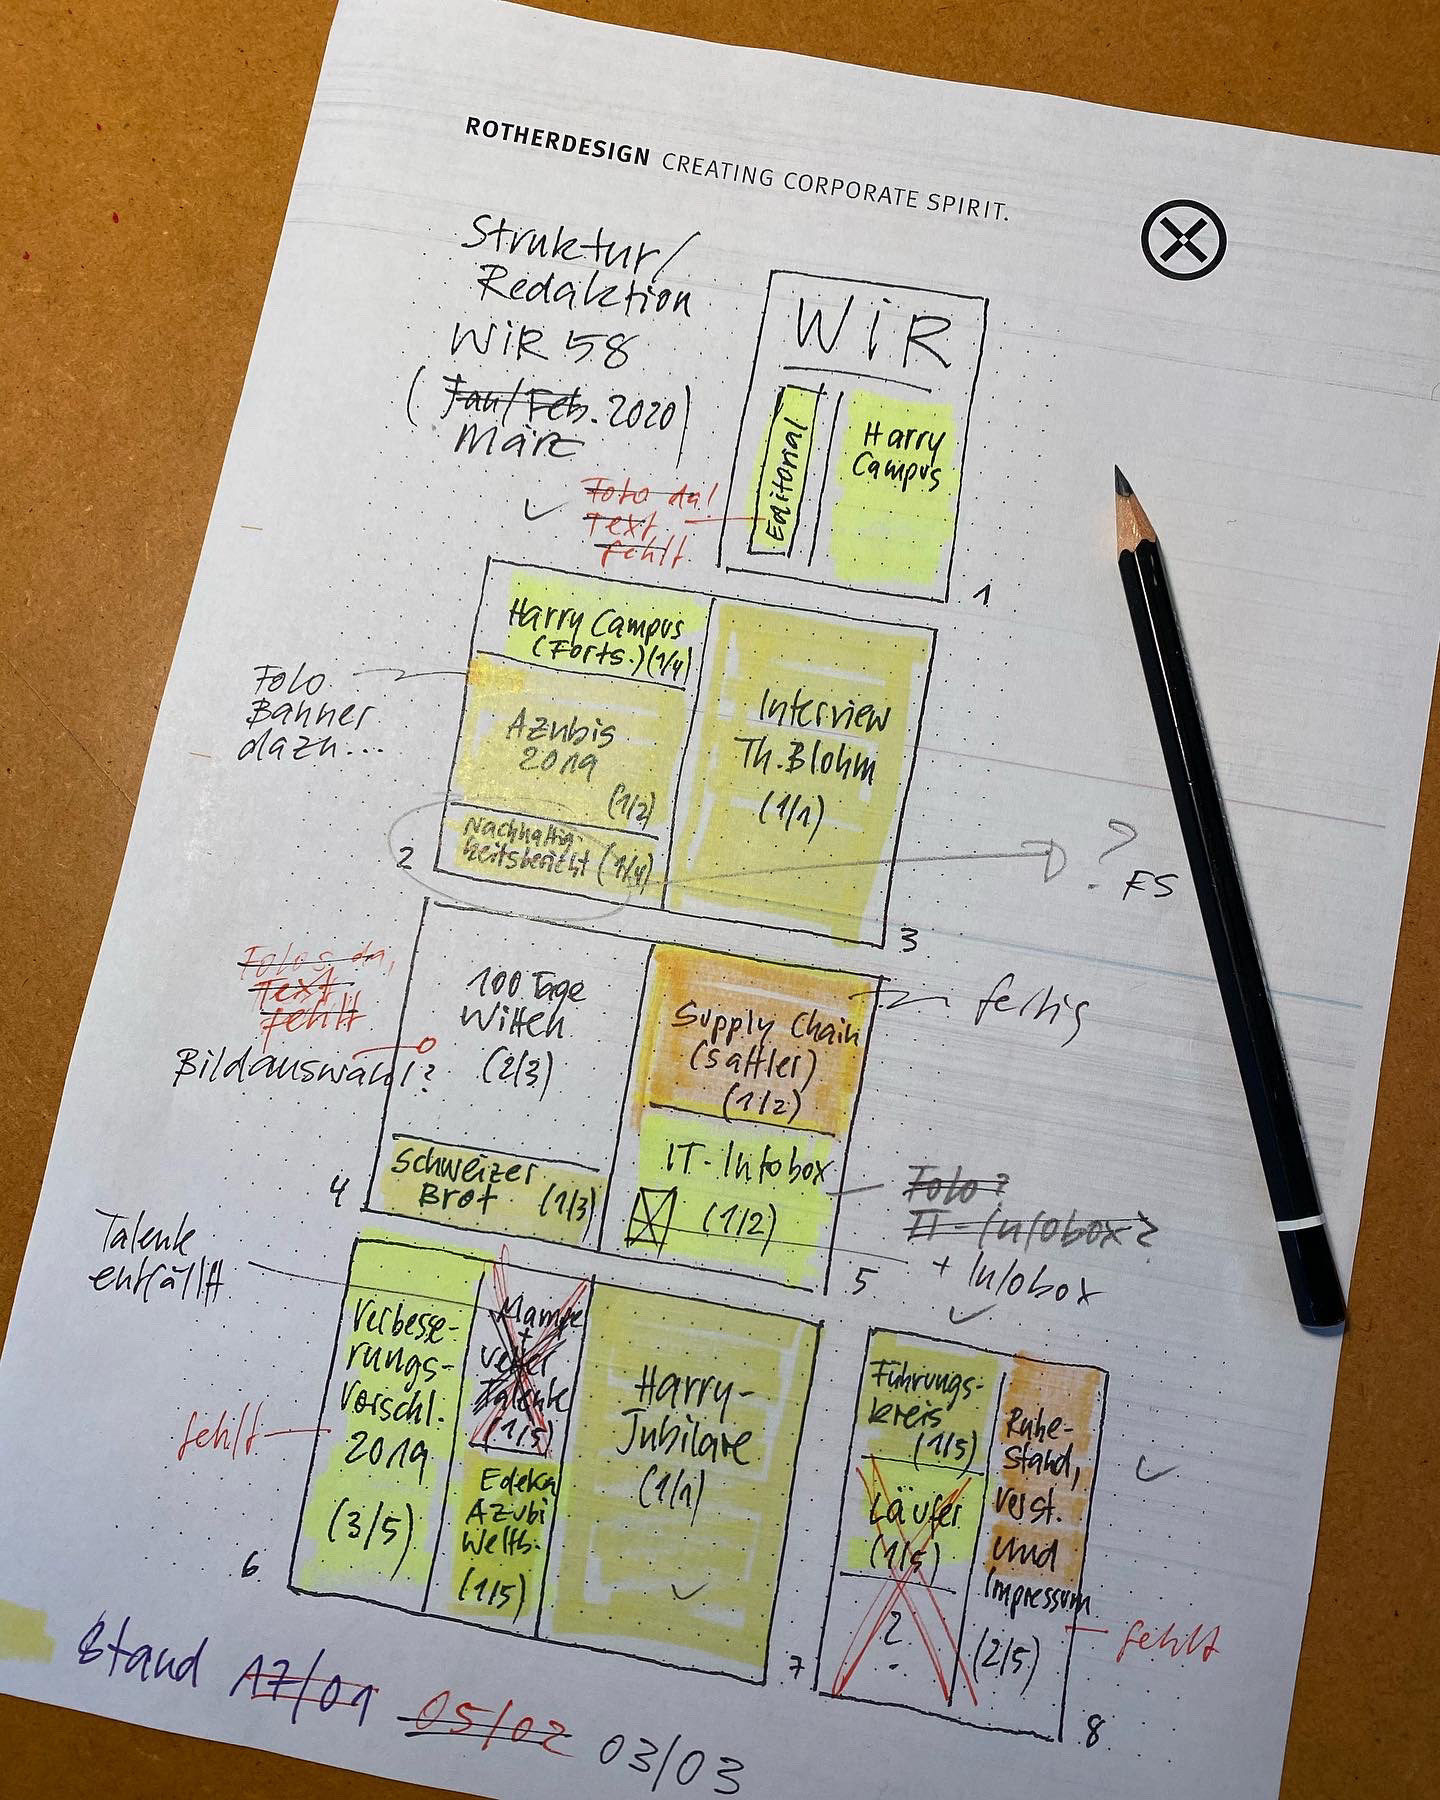 ROTHERDESIGN CREATING CORPORATE SPIRIT.
Struktur/
Redaktion
WIR 58
(Jan/Feb. 2020)
März
WIR
Editorial
Harry
Campus
Foto da!
Text
fehlt
1
Harry Campus
(Forts.) (1/4)
Foto
Banner
dazu...
Azubis
2019
(1/2)
Nachhaltig-
keitsbericht (1/4)
2
Interview
Th. Blohm
(1/1)
? FS
3
Fotos da,
Text
fehlt
Bildauswahl?
100 Tage
Witten
(2/3)
Schweizer
Brot (1/3)
4
Supply Chain
(Sattler)
(1/2)
fertig
IT-Infobox
(1/2)
Foto?
IT-Infobox?
+ Infobox
5
Talente
entfällt
Verbesse-
rungs-
vorschl.
2019
(3/5)
fehlt
6
Talente
(1/5)
Edeka
Azubi
Wettb.
(1/5)
Harry-
Jubilare
(1/1)
7
Führungs-
kreis
(1/5)
Läufer
(1/5)
?
Ruhe-
stand,
verst.
und
Impressum
(2/5)
fehlt
8
Stand 17/01 05/02 03/03